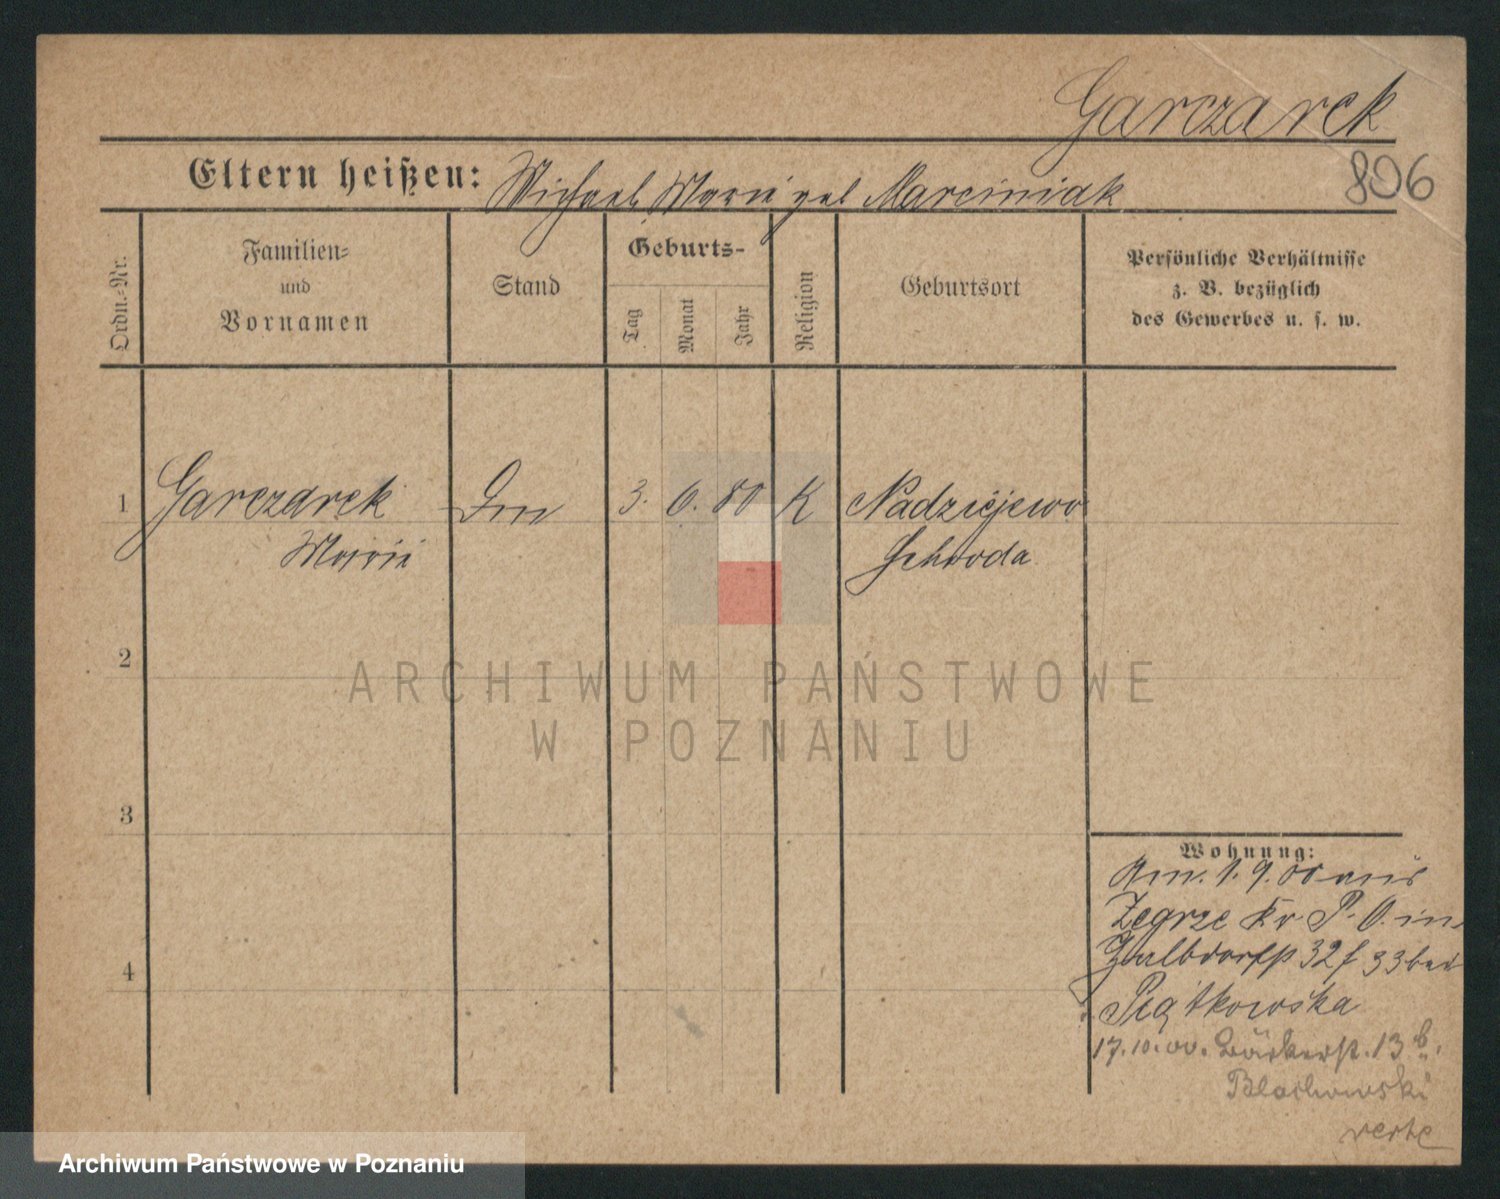 Garczarek
806
Eltern heißen: Michael Marie geb Marciniak
Ordn.-Nr.
Familien-
und
Vornamen
Stand
Geburts-
Tag
Monat
Jahr
Religion
Geburtsort
Persönliche Verhältnisse
z. B. bezüglich
des Gewerbes u. s. w.
1 Garczarek 3. 6. 80 K Nadziejewo
Marie Schroda
2
3
4
Wohnung:
Am. 1. 9. 00 aus
Zegrze Kr P. O. in
Halbdorfst 32 f 33 bei
Piątkowska
17. 10. 00. Bäckerst. 13 b.
Blachowski
verte
ARCHIWUM PAŃSTWOWE
W POZNANIU
Archiwum Państwowe w Poznaniu